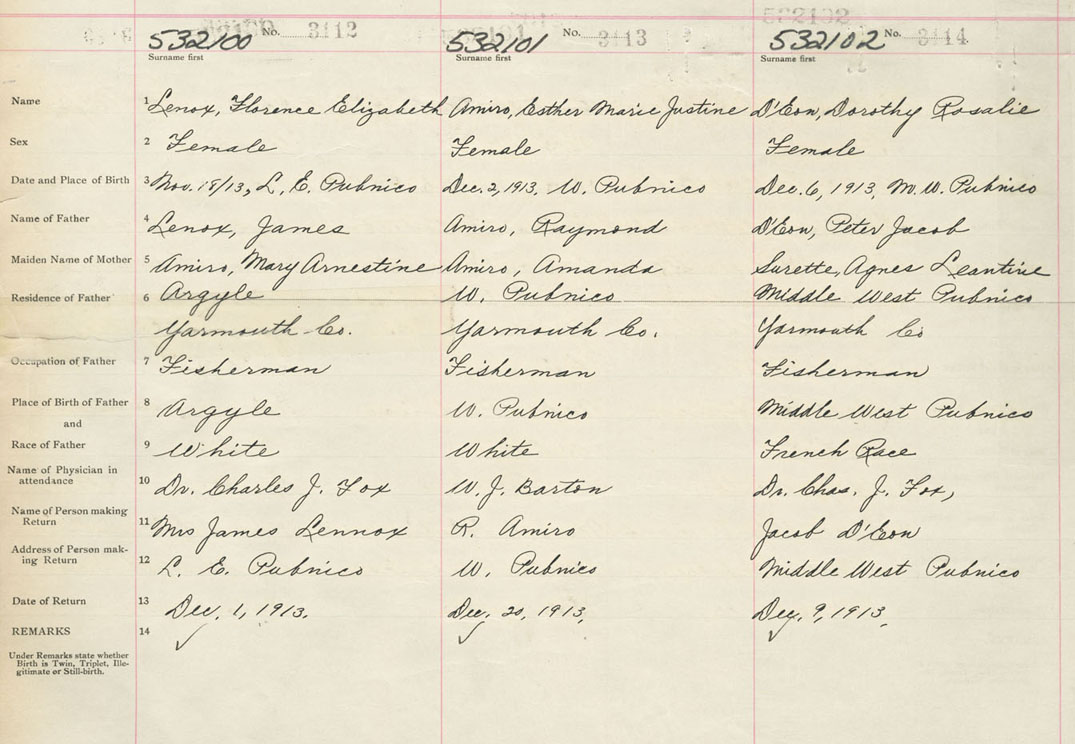 532102
532100 No. 3112 532101 No. 3113 532102 No. 3114
Surname first Surname first Surname first
Name 1 Lenox, Florence Elizabeth Amiro, Esther Marie Justine D'Eon, Dorothy Rosalie
Sex 2 Female Female Female
Date and Place of Birth 3 Nov. 18/13, L. E. Pubnico Dec. 2, 1913, W. Pubnico Dec. 6, 1913, M. W. Pubnico
Name of Father 4 Lenox, James Amiro, Raymond D'Eon, Peter Jacob
Maiden Name of Mother 5 Amiro, Mary Arnestine Amiro, Amanda Surette, Agnes Leantine
Residence of Father 6 Argyle W. Pubnico Middle West Pubnico
Yarmouth Co. Yarmouth Co. Yarmouth Co
Occupation of Father 7 Fisherman Fisherman Fisherman
Place of Birth of Father 8 Argyle W. Pubnico Middle West Pubnico
and
Race of Father 9 White White French Race
Name of Physician in
attendance 10 Dr. Charles J. Fox W. J. Barton Dr. Chas. J. Fox,
Name of Person making
Return 11 Mrs James Lennox R. Amiro Jacob D'Eon
Address of Person mak-
ing Return 12 L. E. Pubnico W. Pubnico Middle West Pubnico
Date of Return 13 Dec. 1, 1913. Dec. 20, 1913, Dec. 9, 1913,
REMARKS 14
Under Remarks state whether
Birth is Twin, Triplet, Ille-
gitimate or Still-birth.